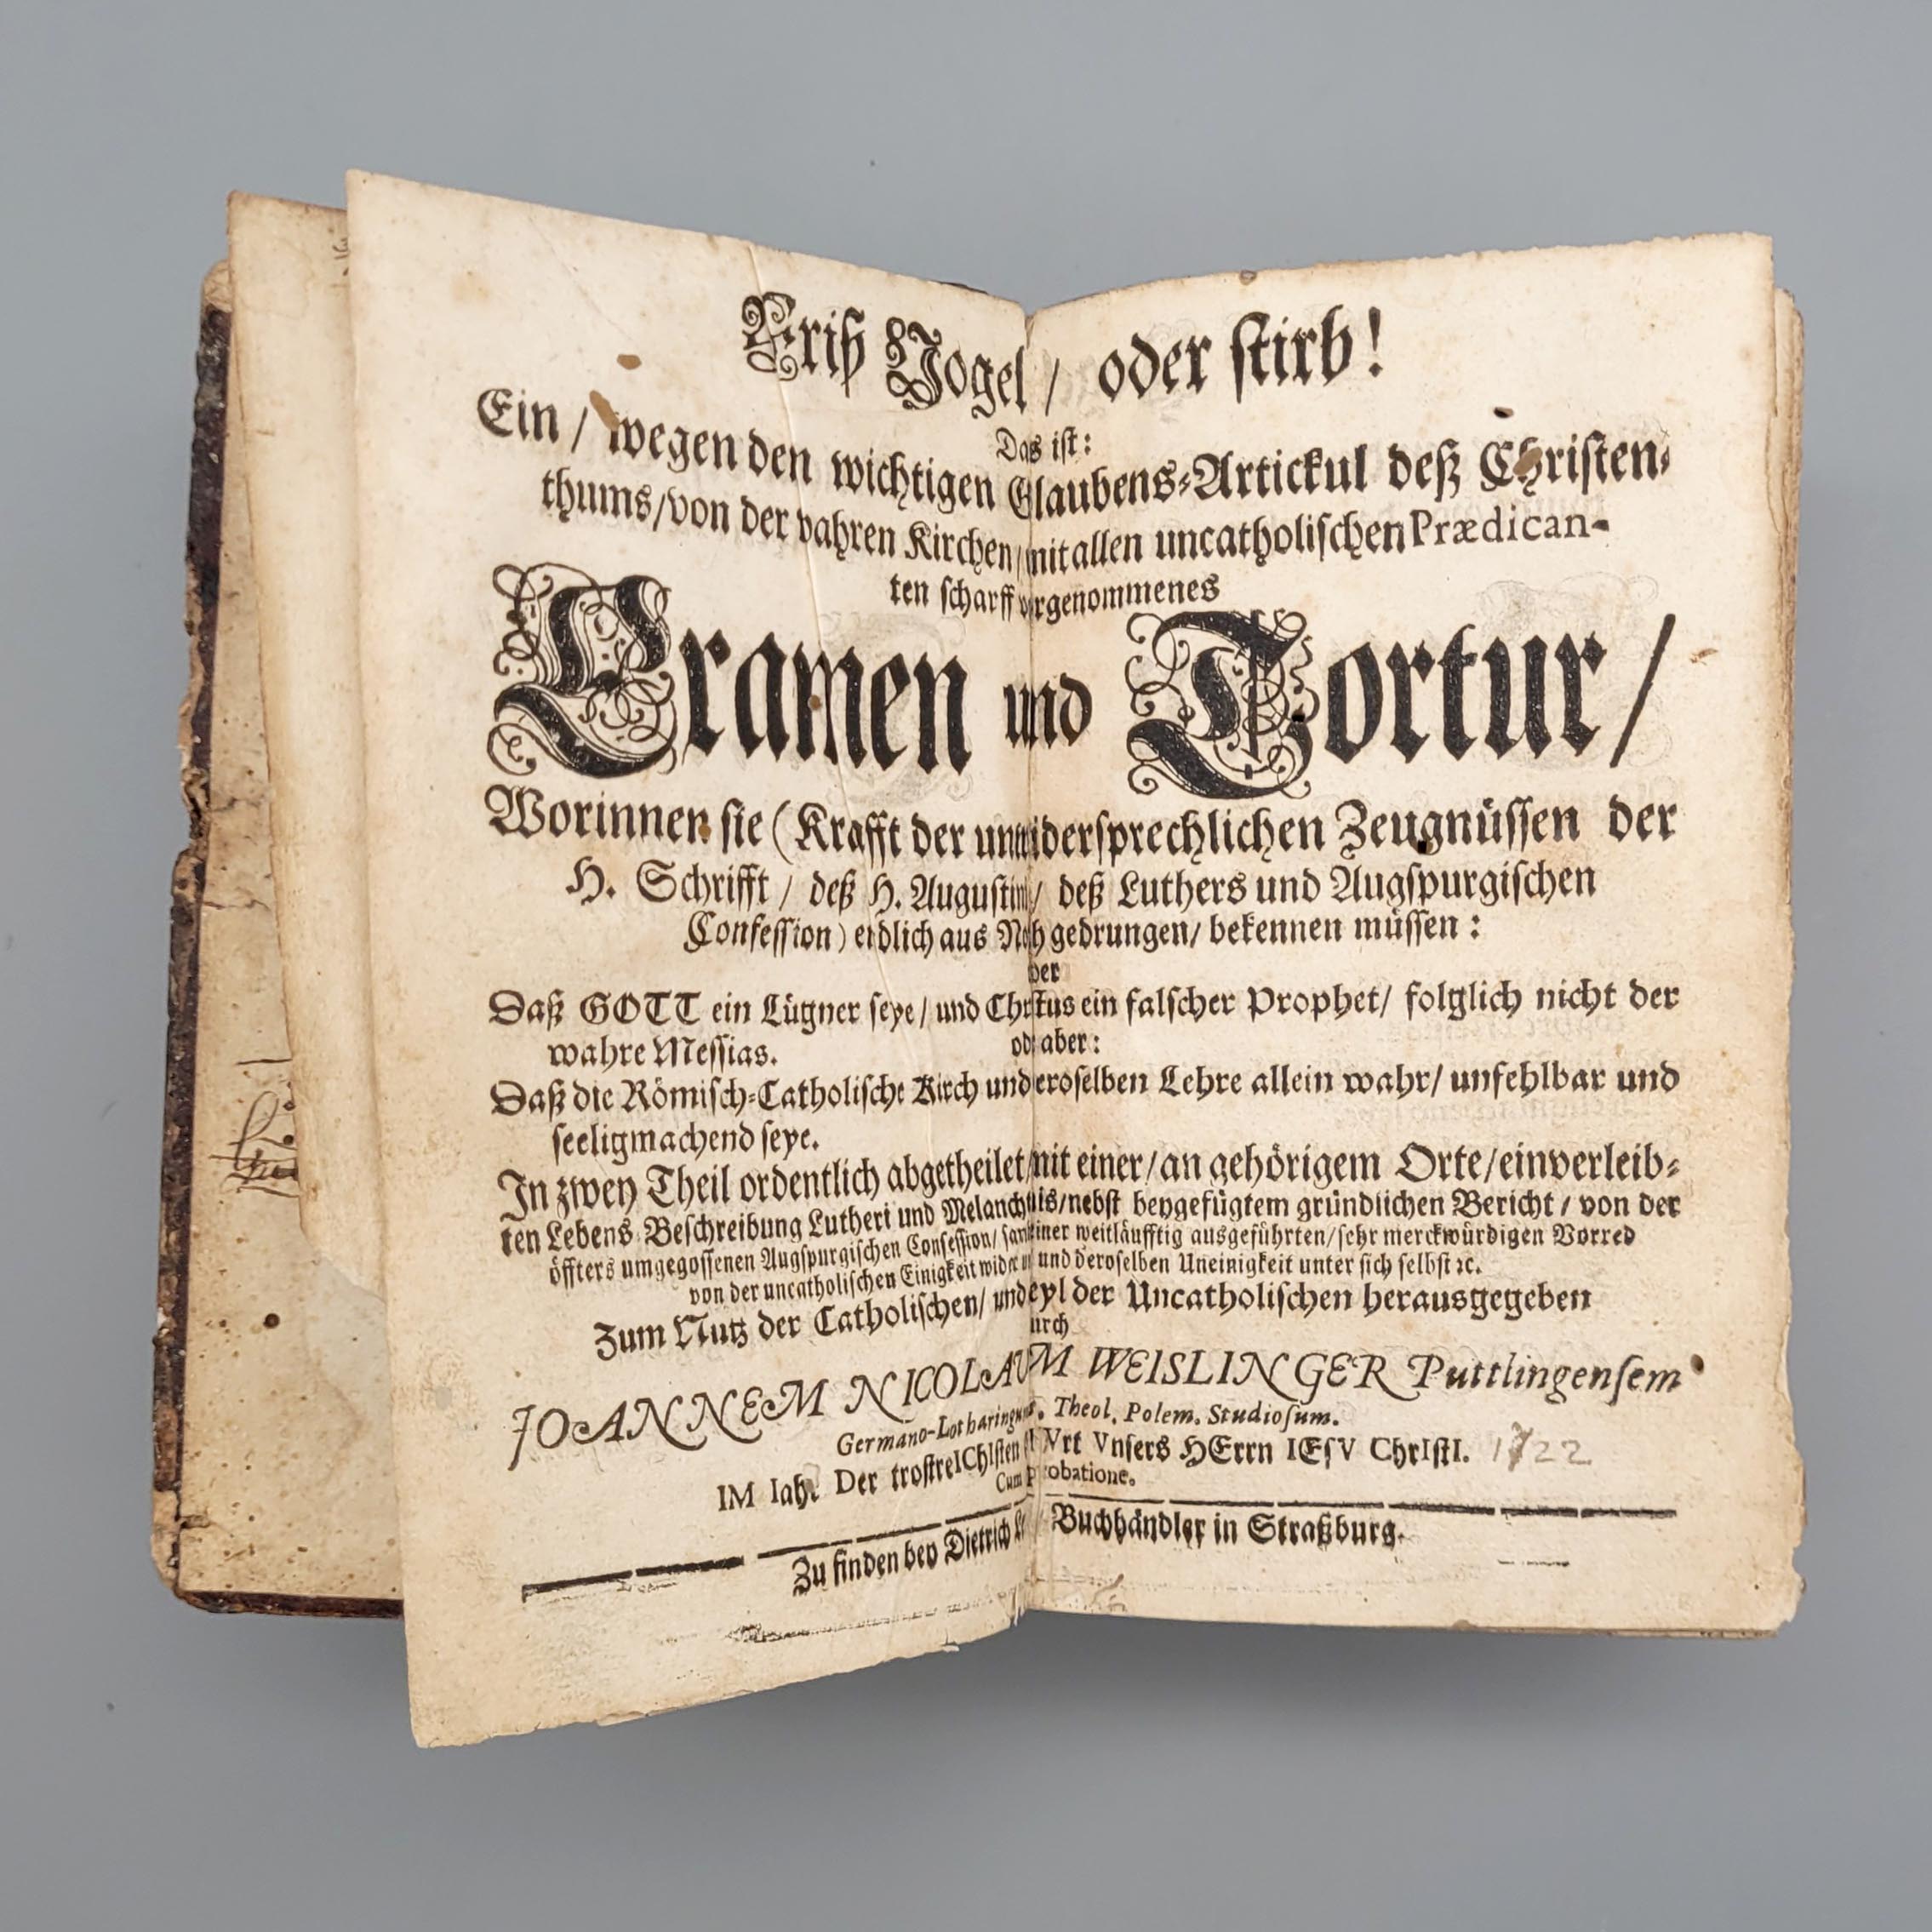 Friß Vogel / oder stirb!
Das ist:
Ein / wegen den wichtigen Glaubens-Artickul deß Christen-
thums/von der wahren Kirchen/mit allen uncatholischen Prædican-
ten scharff vorgenommenes
Examen und Tortur /
Worinnen sie (Krafft der unwidersprechlichen Zeugnüssen der
H. Schrifft / deß H. Augustini / deß Luthers und Augspurgischen
Confession) endlich aus Noth gedrungen/ bekennen müssen :
Daß GOTT ein Lügner seye / und Christus ein falscher Prophet/ folglich nicht der
wahre Messias.
oder aber :
Daß die Römisch-Catholische Kirch und deroselben Lehre allein wahr/ unfehlbar und
seeligmachend seye.
In zwey Theil ordentlich abgetheilet/mit einer/an gehörigem Orte/einverleib-
ten Lebens-Beschreibung Lutheri und /nebst beygefügtem gründlichen Bericht / von der
öffters umgegossenen Augspurgischen Confession/ samt einer weitläufftig ausgeführten/sehr merckwürdigen Vorred
von der uncatholischen Einigkeit wider und deroselben Uneinigkeit unter sich selbst ꝛc.
Zum Nutz der Catholischen/ und Heyl der Uncatholischen herausgegeben
durch
JOANNEM NICOLAUM WEISLINGER Puttlingensem
Germano-Lotharingum. Theol. Polem. Studiosum.
IM Iahr Der trostreIChIsten Vnsers HErrn IEsV ChrIstI. 1722
Cum Approbatione.
Zu finden bey Dietrich / Buchhändler in Straßburg.